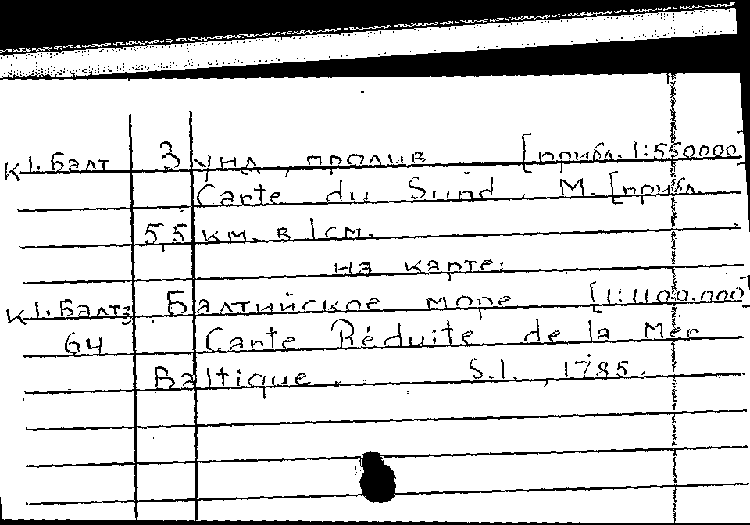 К1.Балт 3унд, пролив [прибл. 1:550000]
Carte du Sund. М. [прибл.
5,5 км. в 1см.
на карте:
К1.Балт3 Балтийское море [1:1100.000]
64 Carte Réduite de la Mer
Baltique. S.l., 1785.